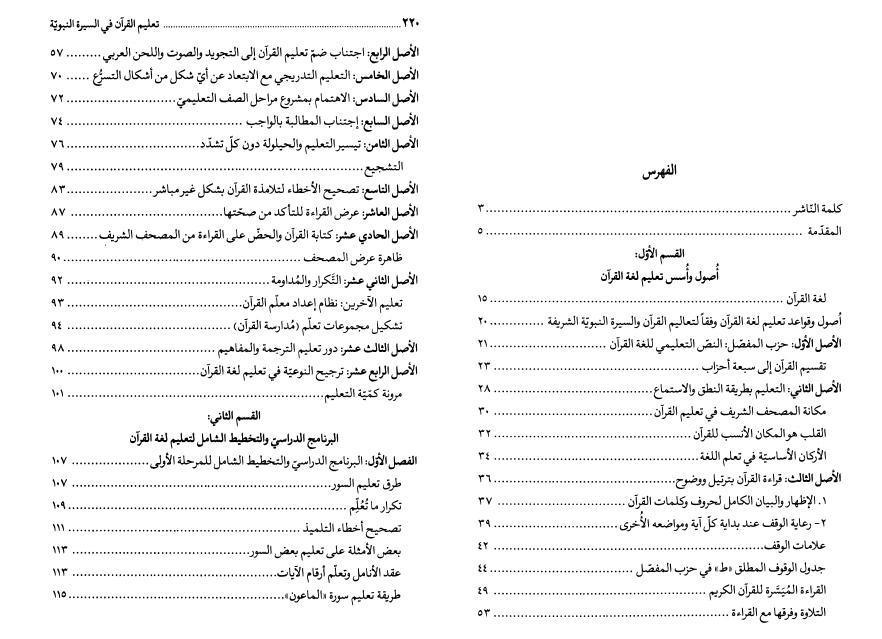 الفهرس
كلمة النّاشر ........ ٣
المقدّمة ........ ٥
القسم الأوّل:
أُصول وأُسس تعليم لغة القرآن
لغة القرآن ........ ١٥
أُصول وقواعد تعليم لغة القرآن وفقاً لتعاليم القرآن والسيرة النبويّة الشريفة ........ ٢٠
الأصل الأوّل: حزب المفصّل: النصّ التعليمي للغة القرآن ........ ٢١
تقسيم القرآن إلى سبعة أحزاب ........ ٢٣
الأصل الثاني: التعليم بطريقة النطق والاستماع ........ ٢٨
مكانة المصحف الشريف في تعليم القرآن ........ ٣٠
القلب هو المكان الأنسب للقرآن ........ ٣٢
الأركان الأساسيّة في تعلم اللغة ........ ٣٤
الأصل الثالث: قراءة القرآن بترتيل ووضوح ........ ٣٦
١. الإظهار والبيان الكامل لحروف وكلمات القرآن ........ ٣٧
٢- رعاية الوقف عند بداية كلّ آية ومواضعه الأُخرى ........ ٣٩
علامات الوقف ........ ٤٢
جدول الوقوف المطلق «ط» في حزب المفصّل ........ ٤٤
القراءة المُيَسَّرة للقرآن الكريم ........ ٤٩
التلاوة وفرقها مع القراءة ........ ٥٣
٢٢٠ ........ تعليم القرآن في السيرة النبويّة
الأصل الرابع: اجتناب ضمّ تعليم القرآن إلى التجويد والصوت واللحن العربي ........ ٥٧
الأصل الخامس: التعليم التدريجي مع الابتعاد عن أيّ شكل من أشكال التسرّع ........ ٧٠
الأصل السادس: الاهتمام بمشروع مراحل الصف التعليميّ ........ ٧٢
الأصل السابع: إجتناب المطالبة بالواجب ........ ٧٤
الأصل الثامن: تيسير التعليم والحيلولة دون كلّ تشدّد ........ ٧٦
التشجيع ........ ٧٩
الأصل التاسع: تصحيح الأخطاء لتلامذة القرآن بشكل غير مباشر ........ ٨٣
الأصل العاشر: عرض القراءة للتأكد من صحّتها ........ ٨٧
الأصل الحادي عشر: كتابة القرآن والحضّ على القراءة من المصحف الشريف ........ ٨٩
ظاهرة عرض المصحف ........ ٩٠
الأصل الثاني عشر: التَّكرار والمُداومة ........ ٩٢
تعليم الآخرين: نظام إعداد معلّم القرآن ........ ٩٣
تشكيل مجموعات تعلّم (مُدارسة القرآن) ........ ٩٤
الأصل الثالث عشر: دور تعليم الترجمة والمفاهيم ........ ٩٨
الأصل الرابع عشر: ترجيح النوعيّة في تعليم لغة القرآن ........ ١٠٠
مرونة كمّيّة التعليم ........ ١٠١
القسم الثاني:
البرنامج الدراسيّ والتخطيط الشامل لتعليم لغة القرآن
الفصل الأوّل: البرنامج الدراسيّ والتخطيط الشامل للمرحلة الأولى ........ ١٠٧
طرق تعليم السور ........ ١٠٧
تكرار ما تُعُلِّم ........ ١٠٩
تصحيح أخطاء التلميذ ........ ١١١
بعض الأمثلة على تعليم بعض السور ........ ١١٣
عقد الأنامل وتعلّم أرقام الآيات ........ ١١٣
طريقة تعليم سورة «الماعون» ........ ١١٥